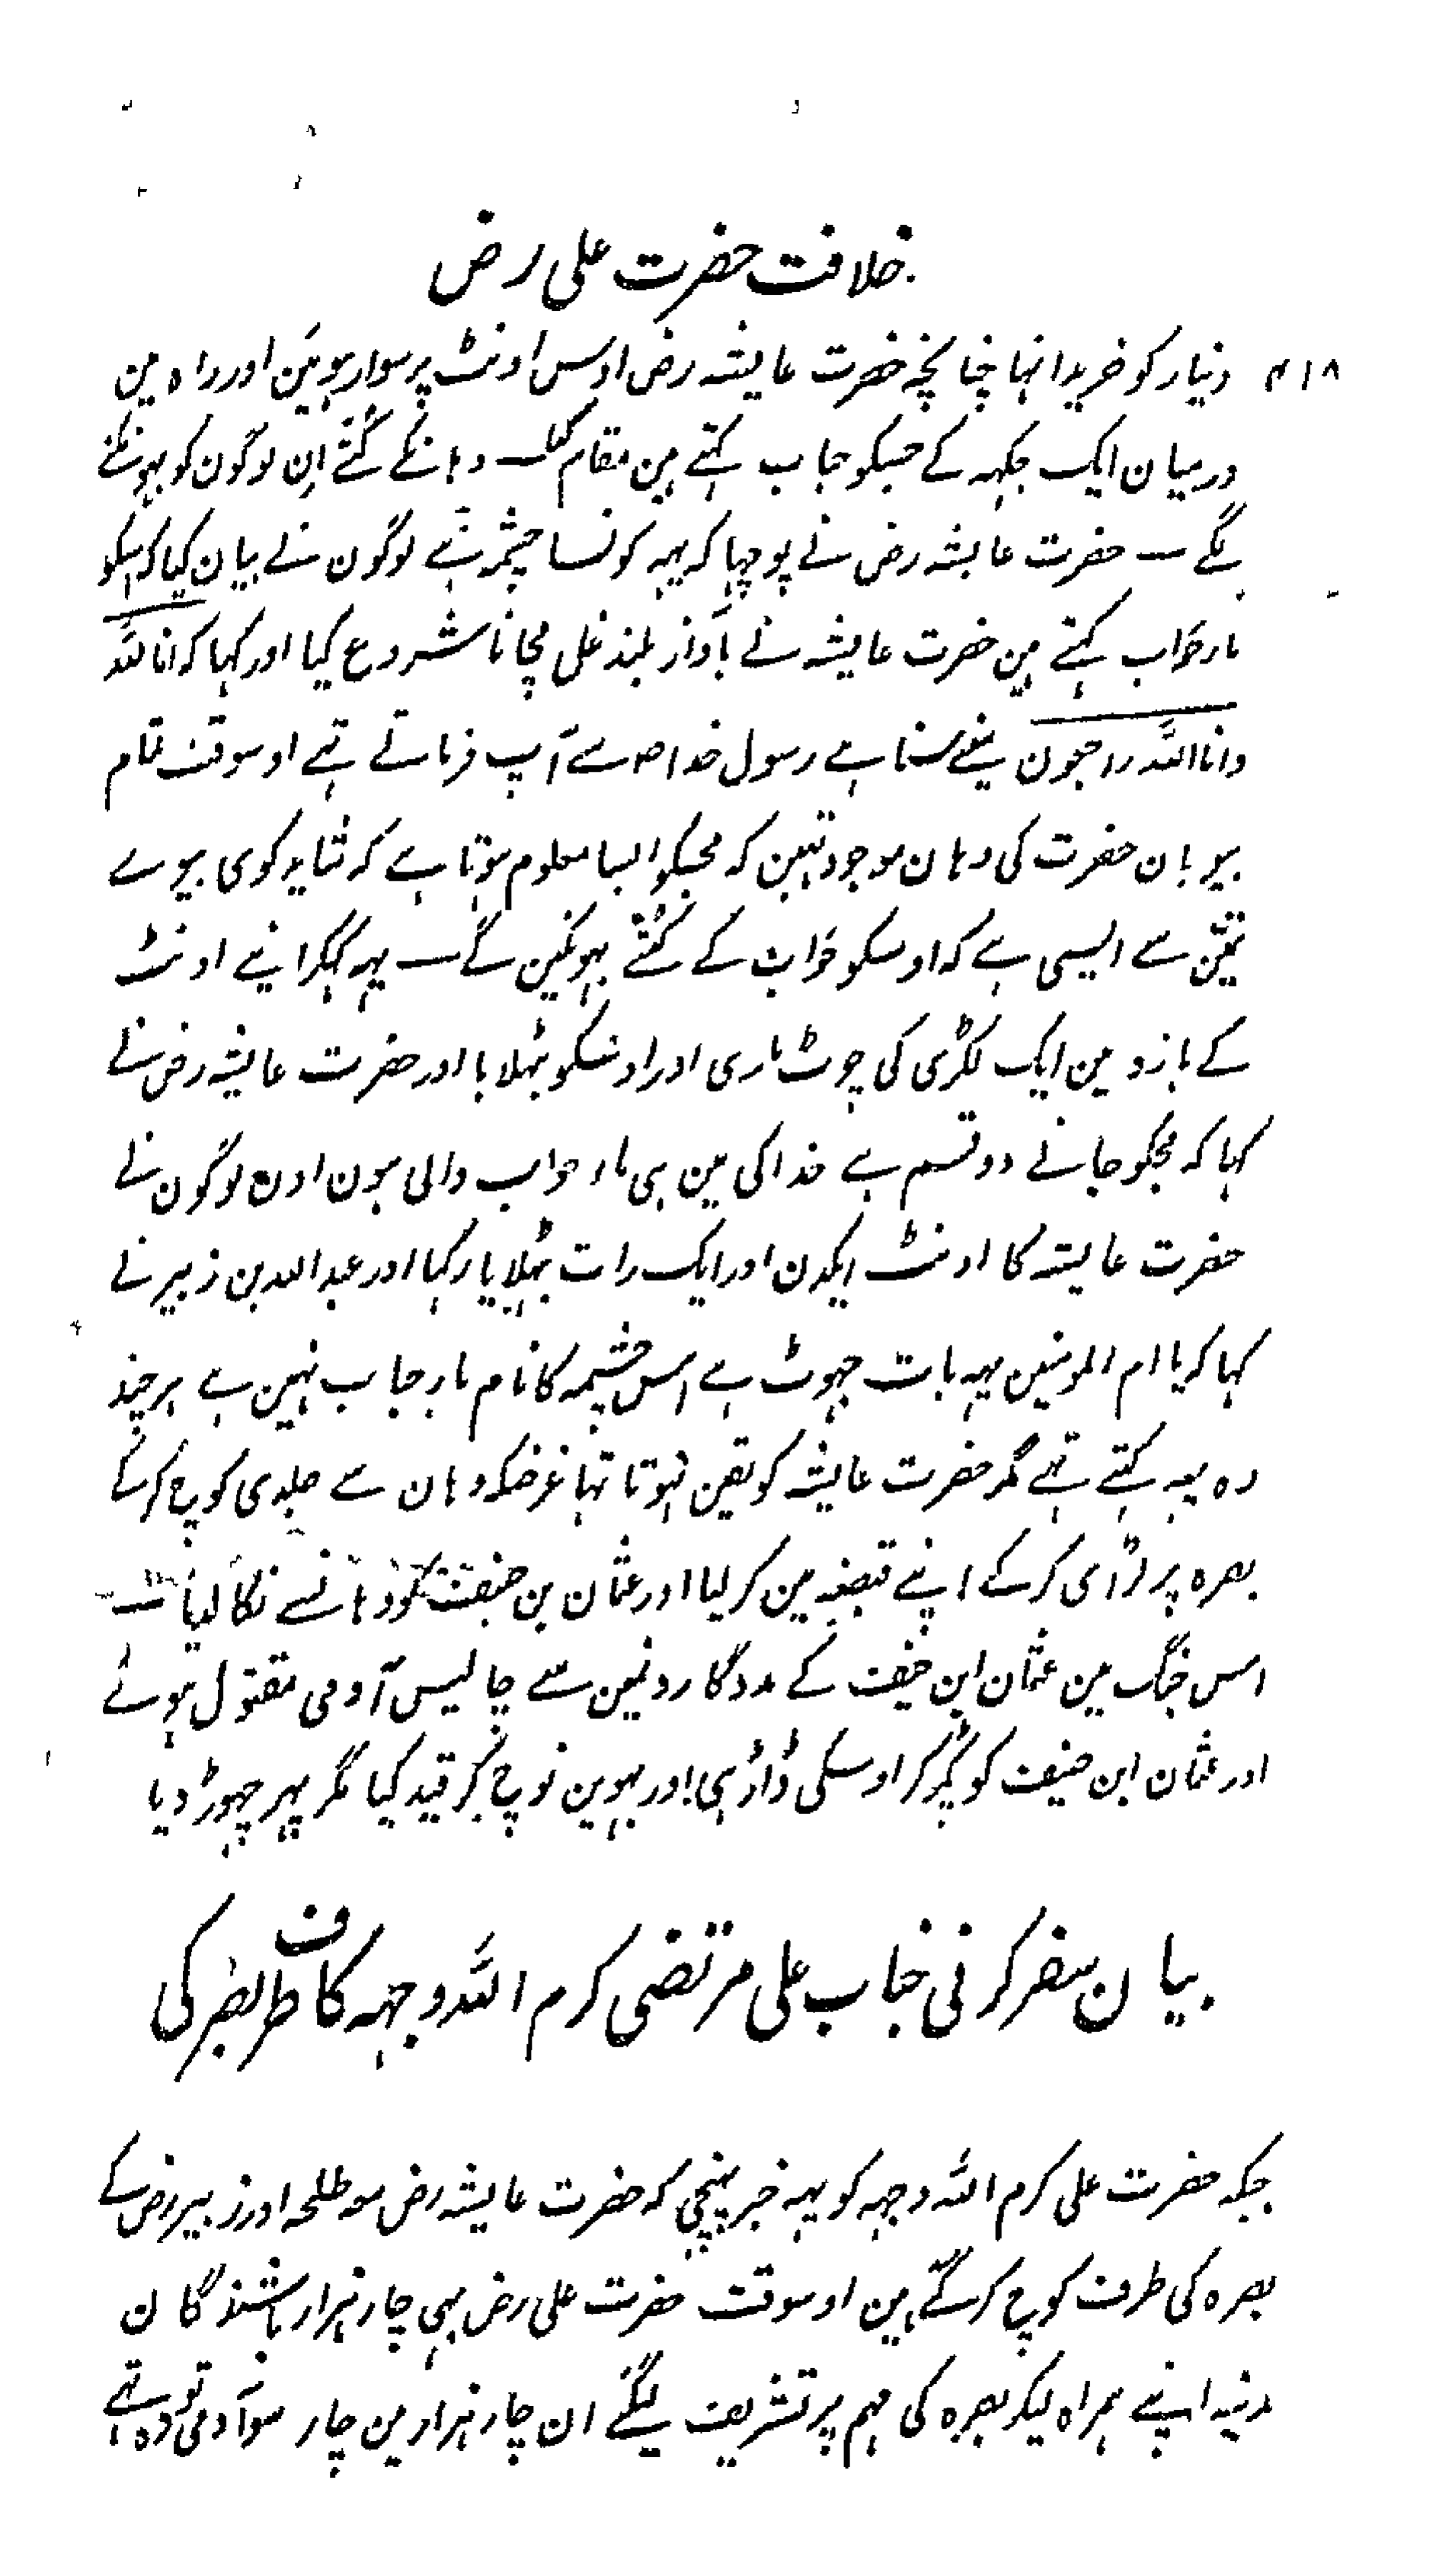 خلافت حضرت علی رض
۴۱۸ دنیار کو خریدا تہا چنانچہ حضرت عایشہ رض اوس اونٹ پر سوار ہوئین اور راہ مین
درمیان ایک جگہہ کے جسکو حاب کہتے ہین مقام کلب وہانکے کتّے ان لوگون کو بہونکنے
لگے ـ حضرت عایشہ رض نے پوچہا کہ یہہ کونسا چشمہ ہے لوگون نے بیان کیا کہ اسکو
مارحَواب کہتے ہین حضرت عایشہ نے بآواز بلند غل مچانا شروع کیا اور کہا کہ انا للہ
وانا الیہ راجعون مینے سنا ہے رسول خدا ص سے آپ فرماتے تہے اوسوقت تمام
بیویان حضرت کی وہان موجود تہین کہ مجہکو ایسا معلوم ہوتا ہے کہ شاید کوی بیوی
تمّین سے ایسی ہے کہ اوسکو حَواب کے کُتّے بہونکین گے ـ یہہ کہکر اپنے اونٹ
کے بازو مین ایک لکڑی کی چوٹ ماری اور اونسکو بٹہلایا اور حضرت عایشہ رض نے
کہا کہ مجکو جانے دو قسم ہے خدا کی مین ہی مارحواب والی ہون اون لوگون نے
حضرت عایشہ کا اونٹ ایکدن اور ایک رات بٹہلایا رکہا اور عبد اللہ بن زبیر نے
کہا کہ یا ام المومنین یہہ بات جہوٹ ہے اس چشمہ کا نام مارحاب نہین ہے ہرچند
وہ یہہ کہتے تہے مگر حضرت عایشہ کو یقین نہوتا تہا غرضکہ وہان سے جلدی کوچ کرکے
بصرہ پر لڑای کرکے اپنے قبضہ مین کرلیا اور عثمان بن حنیف کو وہانسے نکالدیا ـ
اس جنگ مین عثمان ابن حنیف کے مددگارونمین سے چالیس آدمی مقتول ہوئے
اور عثمان ابن حنیف کو پکڑکر اوسکی ڈاڑہی اور بہوین نوچ کر قید کیا مگر پہر چہوڑ دیا
بیان سفر کرنی جناب علی مرتضی کرم اللہ وجہہ کا طرف بصرہ کی
جبکہ حضرت علی کرم اللہ وجہہ کو یہہ خبر پہنچی کہ حضرت عایشہ رض معہ طلحہ اور زبیر رض کے
بصرہ کی طرف کوچ کرگئے ہین اوسوقت حضرت علی رض بہی چار ہزار باشندگان
مدنیہ اپنے ہمراہ لیکر بصرہ کی مہم پر تشریف لیگئے ان چار ہزار مین چار سو آدمی تو وہ تہے